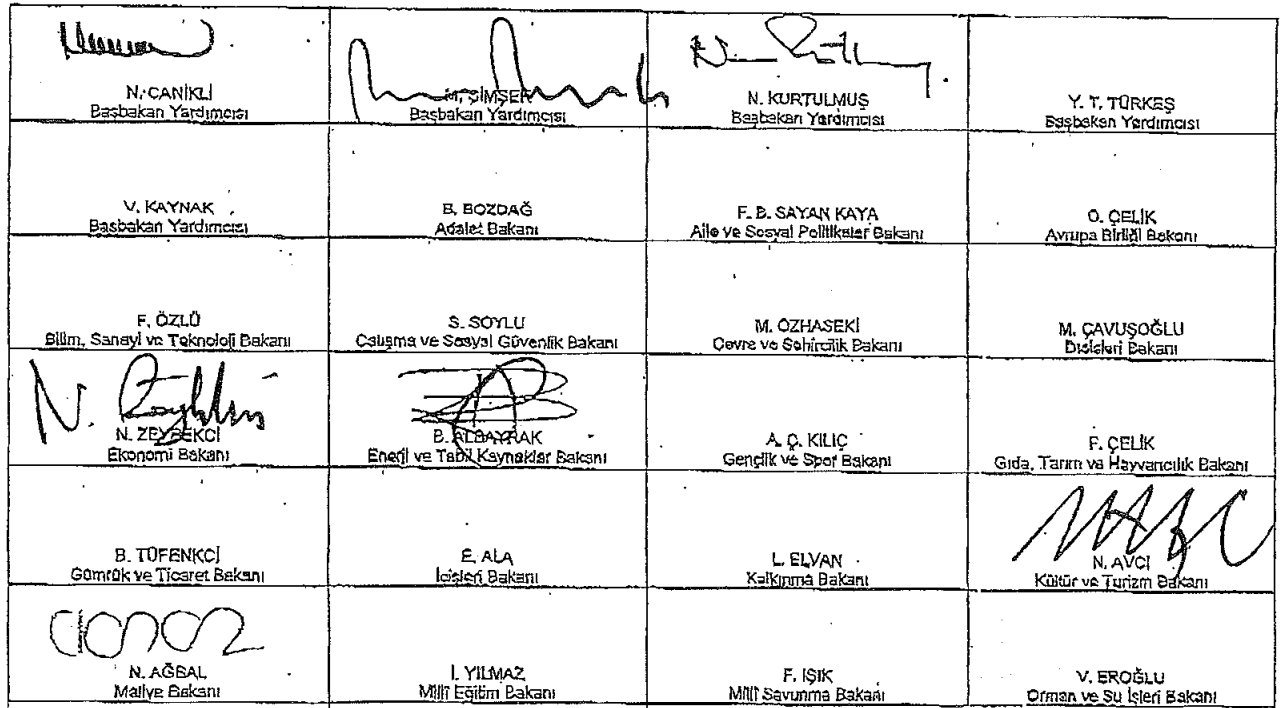 N. CANİKLİ
Başbakan Yardımcısı
M. ŞİMŞEK
Başbakan Yardımcısı
N. KURTULMUŞ
Başbakan Yardımcısı
Y. T. TÜRKEŞ
Başbakan Yardımcısı
V. KAYNAK
Başbakan Yardımcısı
B. BOZDAĞ
Adalet Bakanı
F. B. SAYAN KAYA
Aile ve Sosyal Politikalar Bakanı
Ö. ÇELİK
Avrupa Birliği Bakanı
F. ÖZLÜ
Bilim, Sanayi ve Teknoloji Bakanı
S. SOYLU
Çalışma ve Sosyal Güvenlik Bakanı
M. ÖZHASEKİ
Çevre ve Şehircilik Bakanı
M. ÇAVUŞOĞLU
Dışişleri Bakanı
N. ZEYBEKCİ
Ekonomi Bakanı
B. ALBAYRAK
Enerji ve Tabii Kaynaklar Bakanı
A. Ç. KILIÇ
Gençlik ve Spor Bakanı
F. ÇELİK
Gıda, Tarım ve Hayvancılık Bakanı
B. TÜFENKCİ
Gümrük ve Ticaret Bakanı
E. ALA
İçişleri Bakanı
L. ELVAN
Kalkınma Bakanı
N. AVCI
Kültür ve Turizm Bakanı
N. AĞBAL
Maliye Bakanı
İ. YILMAZ
Millî Eğitim Bakanı
F. IŞIK
Millî Savunma Bakanı
V. EROĞLU
Orman ve Su İşleri Bakanı